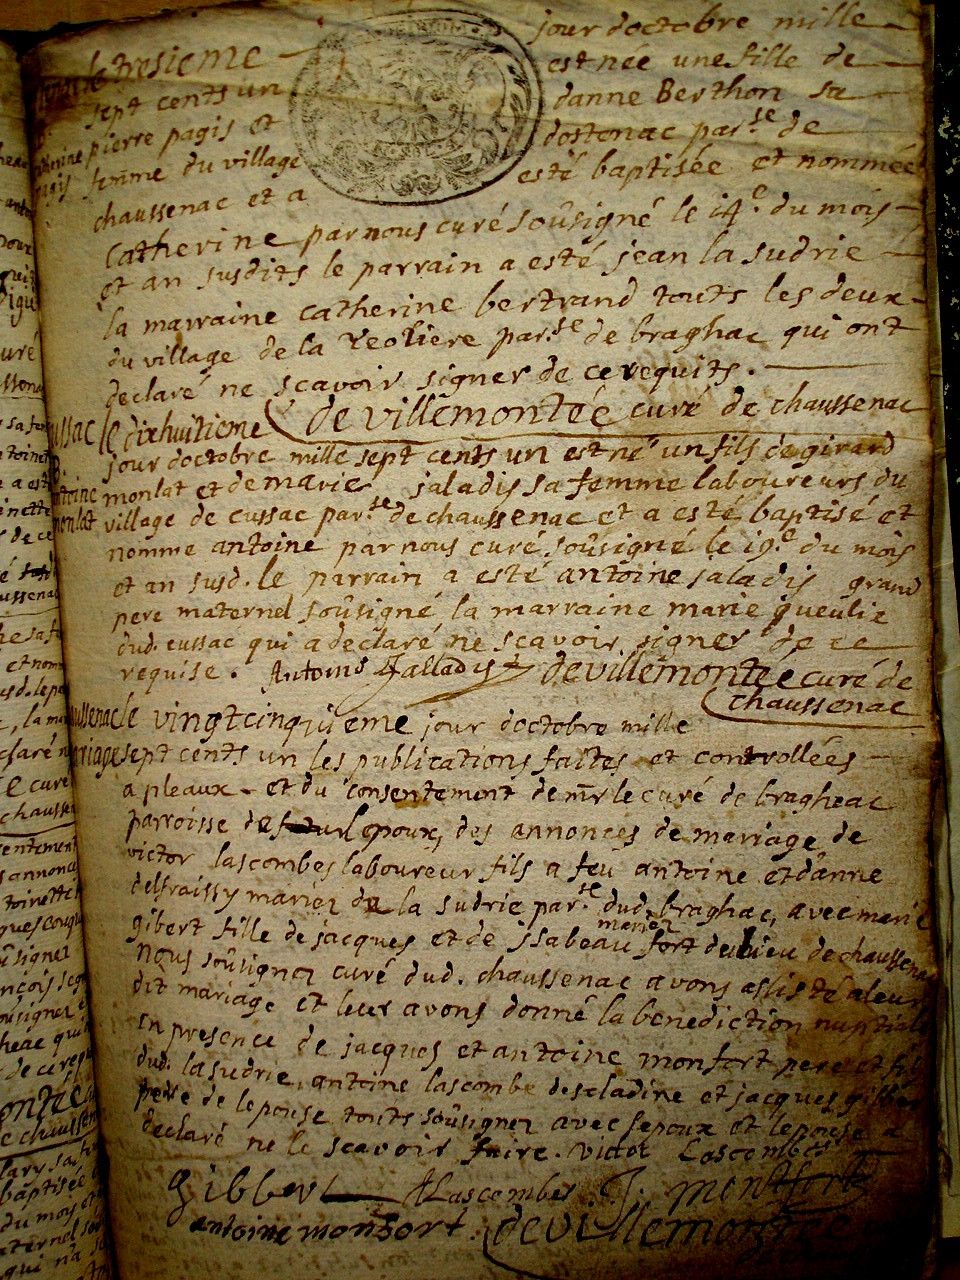 le tresieme jour doctobre mille
sept cents un est née une fille de
pierre pagis et danne Berthon sa
femme du village dostenac par.se de
chaussenac et a esté baptisée et nommée
Catherine par nous curé soûsigné le 14.e du mois
et an susdits le parrain a esté jean la sudrie
la marraine catherine bertrand touts les deux
du village de la reoliere par.se de braghac qui ont
declaré ne scavoir signer de ce requits.
de villemontée curé de chaussenac
le dixhuitieme
jour doctobre mille sept cents un est né un fils de girard
antoine monlat et de marie saladis sa femme laboureurs du
monlat village de cussac par.se de chaussenac et a esté baptisé et
nomme antoine par nous curé soûsigné le 19.e du mois
et an susd. le parrain a esté antoine saladis grand
pere maternel soûsigné, la marraine marie queulie
dud. cussac qui a declaré ne scavoir signer de ce
requise. Antoine Salladis devillemontée curé de
chaussenac
chaussenac le vingtcinquieme jour doctobre mille
mariage sept cents un les publications faites et controllées
a pleaux et du consentement de mr le curé de bragheac
parroisse de lepoux, des annonces de mariage de
victor lascombes laboureur fils a feu antoine et danne
delfraissy mariez de la sudrie par.se dud. braghac, avec marie
gibert fille de jacques et de issabeau fort mariez du lieu de chaussenac
Nous soûsignez curé dud. chaussenac avons assisté a leur
dit mariage et leur avons donné la benediction nuptiale
en presence de jacques et antoine monfort pere et fils
dud. la sudrie, antoine lascombe descladine et jacques gilbert
pere de lepouse touts soûsignez avec lepoux et lepouse a
declaré ne le scavoir faire. victor Lascombes
Gibbert ALascombes J. montfort
antoine monfort. devillemontée